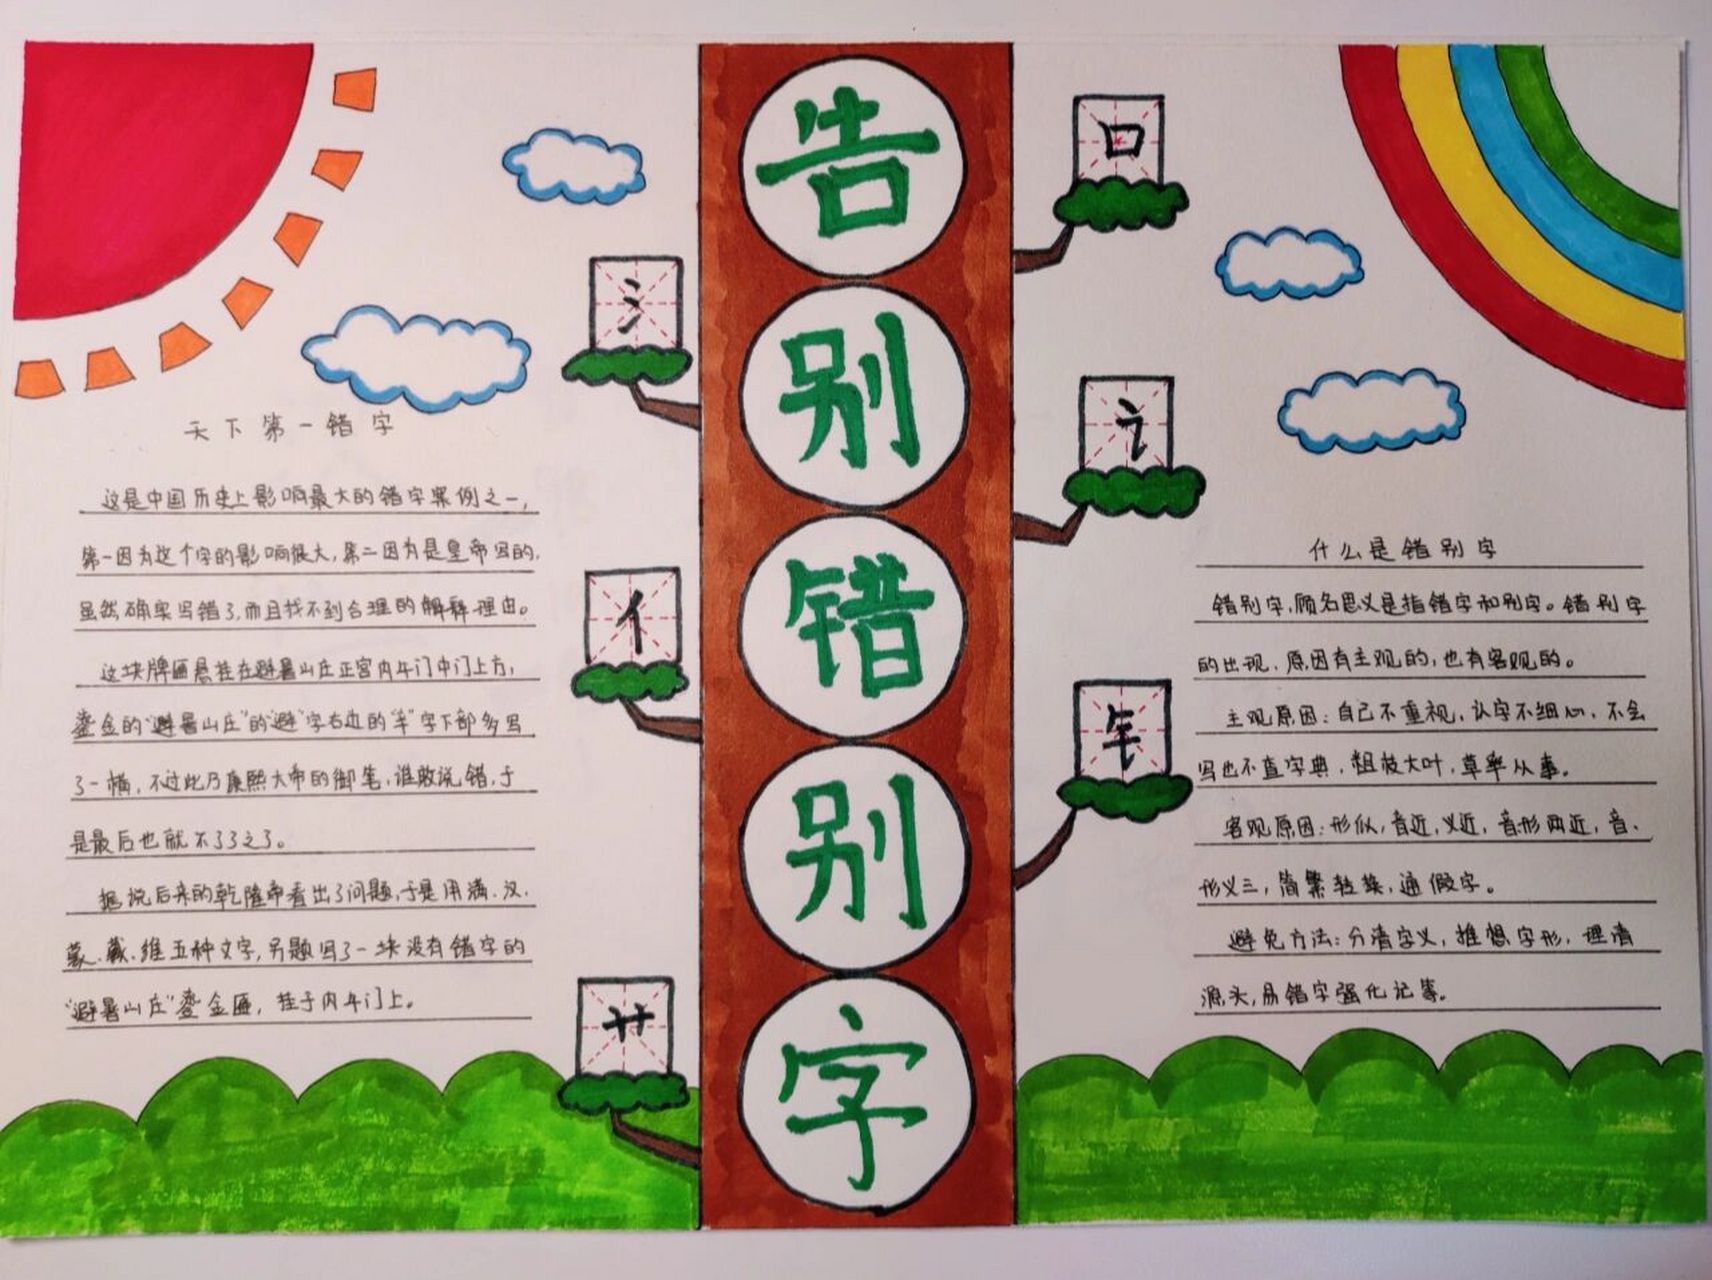 告
别
错
别
字
氵
亻
艹
口
讠
钅
天下第一错字
这是中国历史上影响最大的错字案例之一，
第一因为这个字的影响很大，第二因为是皇帝写的，
虽然确实写错了，而且找不到合理的解释理由。
这块牌匾悬挂在避暑山庄正宫内午门中门上方，
鎏金的“避暑山庄”的“避”字右边的“辛”字下部多写
了一横，不过此乃康熙大帝的御笔，谁敢说错，于
是最后也就不了了之了。
据说后来的乾隆帝看出了问题，于是用满、汉、
蒙、藏、维五种文字，另题写了一块没有错字的
“避暑山庄”鎏金匾，挂于内午门上。
什么是错别字
错别字，顾名思义是指错字和别字。错别字
的出现，原因有主观的，也有客观的。
主观原因：自己不重视，认字不细心，不会
写也不查字典，粗枝大叶，草率从事。
客观原因：形似，音近，义近，音形两近，音、
形义三，简繁转换，通假字。
避免方法：分清字义，推想字形，理清
源头，易错字强化记事。